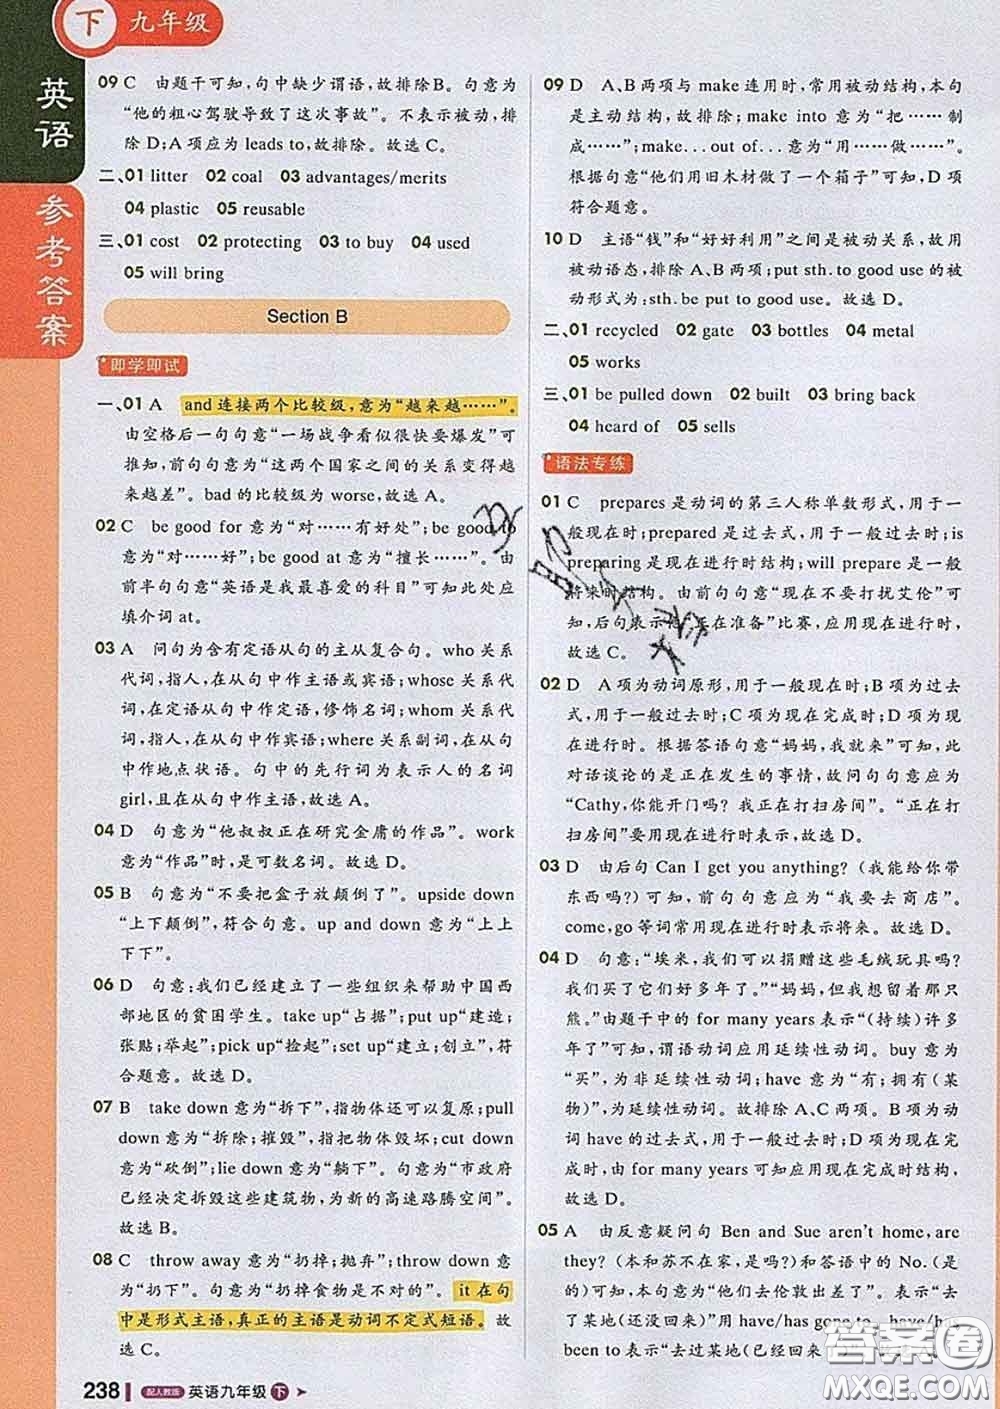 下 九年级
英语
参考答案
09 C 由题干可知,句中缺少谓语,故排除B。句意为
“他的粗心驾驶导致了这次事故”。不表示被动,排
除D;A项应为leads to,故排除。故选C。
二、01 litter 02 coal 03 advantages/merits
04 plastic 05 reusable
三、01 cost 02 protecting 03 to buy 04 used
05 will bring
Section B
即学即试
一、01 A and连接两个比较级,意为“越来越……”。
由空格后一句句意“一场战争看似很快要爆发”可
推知,前句句意为“这两个国家之间的关系变得越
来越差”。bad的比较级为worse,故选A。
02 C be good for 意为“对……有好处”;be good to
意为“对……好”;be good at 意为“擅长……”。由
前半句句意“英语是我最喜爱的科目”可知此处应
填介词at。
03 A 问句为含有定语从句的主从复合句。who关系
代词,指人,在从句中作主语或宾语;whose关系代
词,在定语从句中作定语,修饰名词;whom关系代
词,指人,在从句中作宾语;where关系副词,在从句
中作地点状语。句中的先行词为表示人的名词
girl,且在从句中作主语,故选A。
04 D 句意为“他叔叔正在研究金庸的作品”。work
意为“作品”时,是可数名词。故选D。
05 B 句意为“不要把盒子放颠倒了”。upside down
“上下颠倒”,符合句意。up and down意为“上上
下下”。
06 D 句意:我们已经建立了一些组织来帮助中国西
部地区的贫困学生。take up“占据”;put up“建造;
张贴;举起”;pick up“捡起”;set up“建立;创立”,符
合题意。故选D。
07 B take down意为“拆下”,指物体还可以复原;pull
down意为“拆除;摧毁”,指把物体毁坏;cut down
意为“砍倒”;lie down意为“躺下”。句意为“市政府
已经决定拆毁这些建筑物,为新的高速路腾空间”。
故选B。
08 C throw away 意为“扔掉;抛弃”;throw down意
为“扔下”。句意为“扔掉食物是不对的”。it在句
中是形式主语,真正的主语是动词不定式短语。故
选C。
09 D A、B两项与make连用时,常用被动结构,本句
是主动结构,故排除;make into 意为“把……制
成……”;make...out of...意为“用……做……”。
根据句意“他们用旧木材做了一个箱子”可知,D项
符合题意。
10 D 主语“钱”和“好好利用”之间是被动关系,故用
被动语态,排除A、B两项;put sth. to good use的被
动形式为:sth. be put to good use。故选D。
二、01 recycled 02 gate 03 bottles 04 metal
05 works
三、01 be pulled down 02 built 03 bring back
04 heard of 05 sells
语法专练
01 C prepares是动词的第三人称单数形式,用于一
般现在时;prepared是过去式,用于一般过去时;is
preparing是现在进行时结构;will prepare是一般
将来时结构。由前句句意“现在不要打扰艾伦”可
知,后句表示他“正在准备”比赛,应用现在进行时,
故选C。
02 D A项为动词原形,用于一般现在时;B项为过去
式,用于一般过去时;C项为现在完成时;D项为现
在进行时。根据答语句意“妈妈,我就来”可知,此
对话谈论的是正在发生的事情,故问句句意应为
“Cathy,你能开门吗?我正在打扫房间”。“正在打
扫房间”要用现在进行时表示,故选D。
03 D 由后句Can I get you anything?(我能给你带
东西吗?)可知,前句句意为“我要去商店”。
come,go等词常用现在进行时表示将来,故选D。
04 D 句意:“埃米,我们可以捐赠这些毛绒玩具吗?
我们买了它们好多年了。”“妈妈,但我想留着那只
熊。”由题干中的for many years表示“(持续)许多
年了”可知,谓语动词应用延续性动词。buy意为
“买”,为非延续性动词;have意为“有;拥有(某
物)”,为延续性动词。故排除A、C两项。B项为
动词have的过去式,用于一般过去时;D项为现在完
成时,由for many years可知应用现在完成时结构,
故选D。
05 A 由反意疑问句Ben and Sue aren't home, are
they?(本和苏不在家,是吗?)和答语中的No.(是
的,不在。)可知,句意为“他们去伦敦出差了”。表示“去
了某地(还没回来)”用have/has gone to。have/
has been to表示“去过某地(已经回来了)”。故选A。
238 配人教版 英语九年级 下
答案圈
MXQE.COM